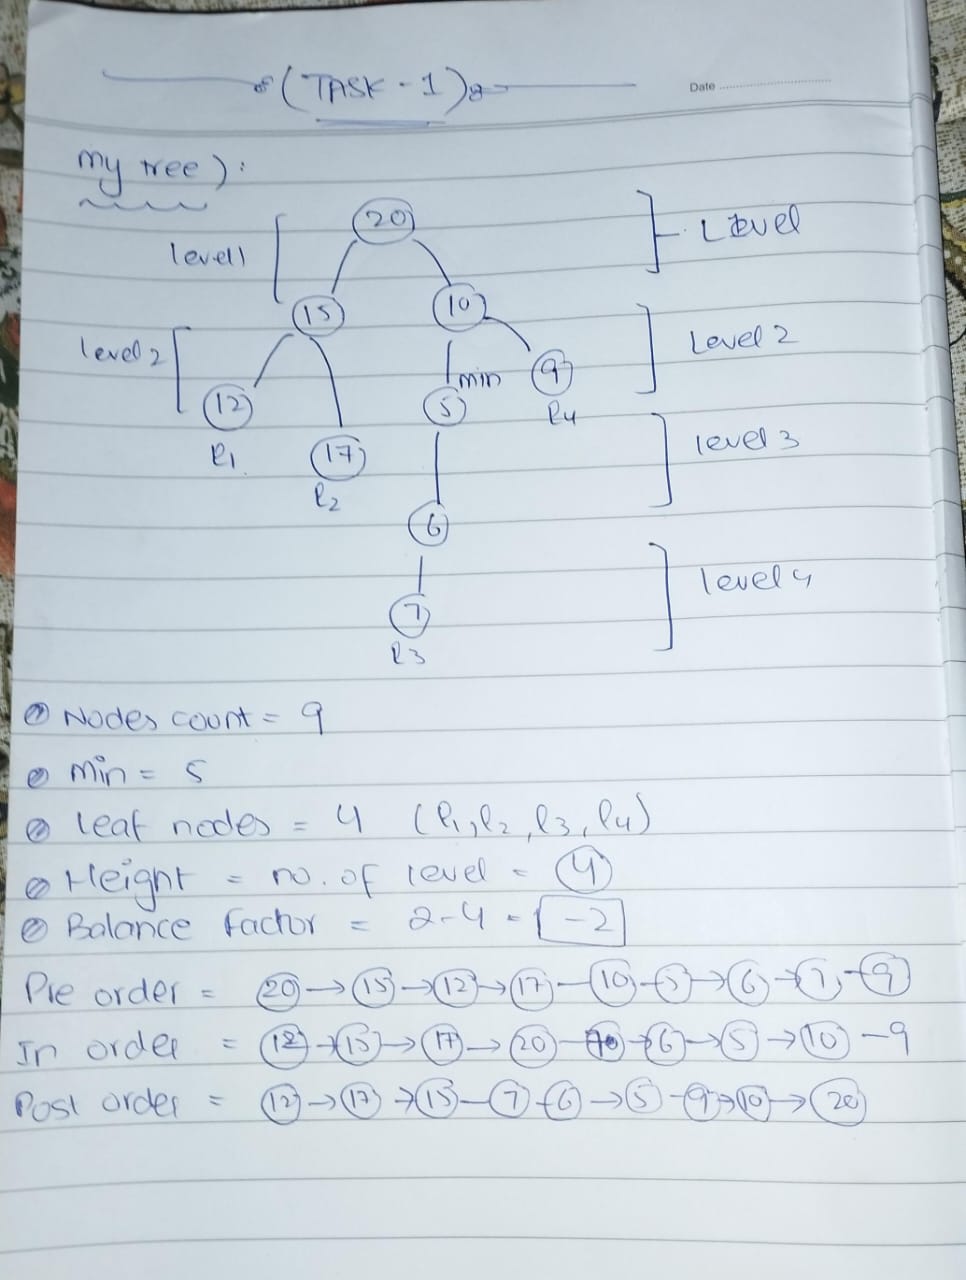 (TASK - 1)
Date
my tree):
20
Level
level1
15
10
level 2
Level 2
min
9
12
5
l4
l1
17
level 3
l2
6
level 4
7
l3
Nodes count = 9
Min = 5
leaf nodes = 4 (l1, l2, l3, l4)
Height = no. of level = 4
Balance factor = 2-4 = -2
Pre order = 20 → 15 → 12 → 17 - 10 - 5 → 6 → 7 - 9
In order = 12 → 15 → 17 → 20 - 6 → 5 → 10 - 9
Post order = 12 → 17 → 15 - 7 - 6 → 5 - 9 → 10 → 20